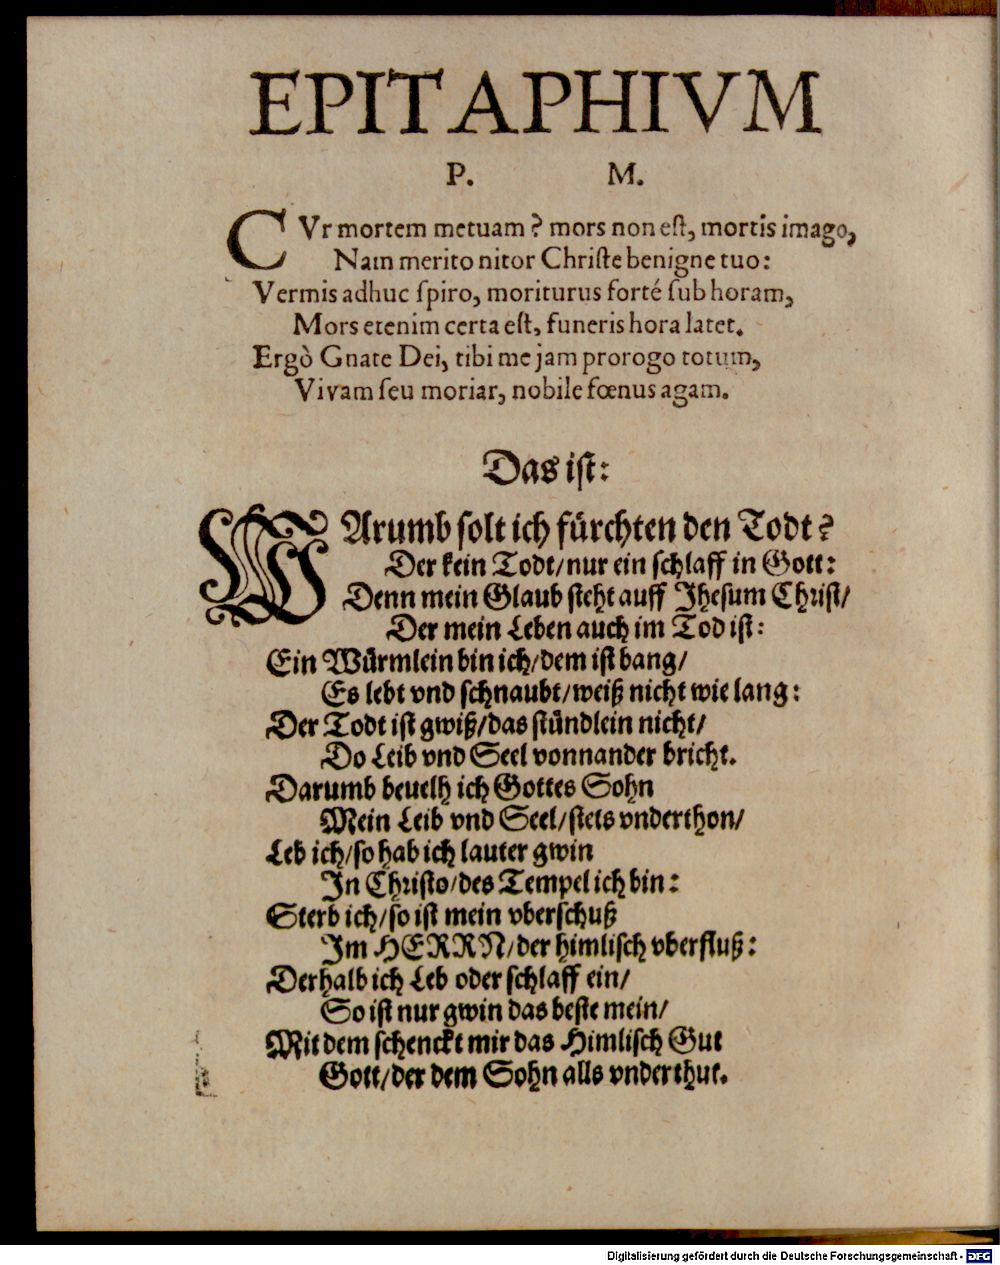 EPITAPHIVM
P. M.
CVr mortem metuam? mors non eſt, mortis imago,
Nam merito nitor Chriſte benigne tuo:
Vermis adhuc ſpiro, moriturus forté ſub horam,
Mors etenim certa eſt, funeris hora latet.
Ergò Gnate Dei, tibi me jam prorogo totum,
Vivam ſeu moriar, nobile fœnus agam.
Das iſt:
WArumb ſolt ich fürchten den Todt?
Der kein Todt/nur ein ſchlaff in Gott:
Denn mein Glaub ſteht auff Jheſum Chriſt/
Der mein Leben auch im Tod iſt:
Ein Würmlein bin ich/dem iſt bang/
Es lebt vnd ſchnaubt/weiß nicht wie lang:
Der Todt iſt gwiß/das ſtündlein nicht/
Do Leib vnd Seel vonnander bricht.
Darumb beuelh ich Gottes Sohn
Mein Leib vnd Seel/ſtets vnderthon/
Leb ich/ſo hab ich lauter gwin
In Chriſto/des Tempel ich bin:
Sterb ich/ſo iſt mein vberſchuß
Im HERRN/der himliſch vberfluß:
Derhalb ich Leb oder ſchlaff ein/
So iſt nur gwin das beſte mein/
Mit dem ſchenckt mir das Himliſch Gut
Gott/der dem Sohn alls vnderthut.
Digitalisierung gefördert durch die Deutsche Forschungsgemeinschaft - DFG